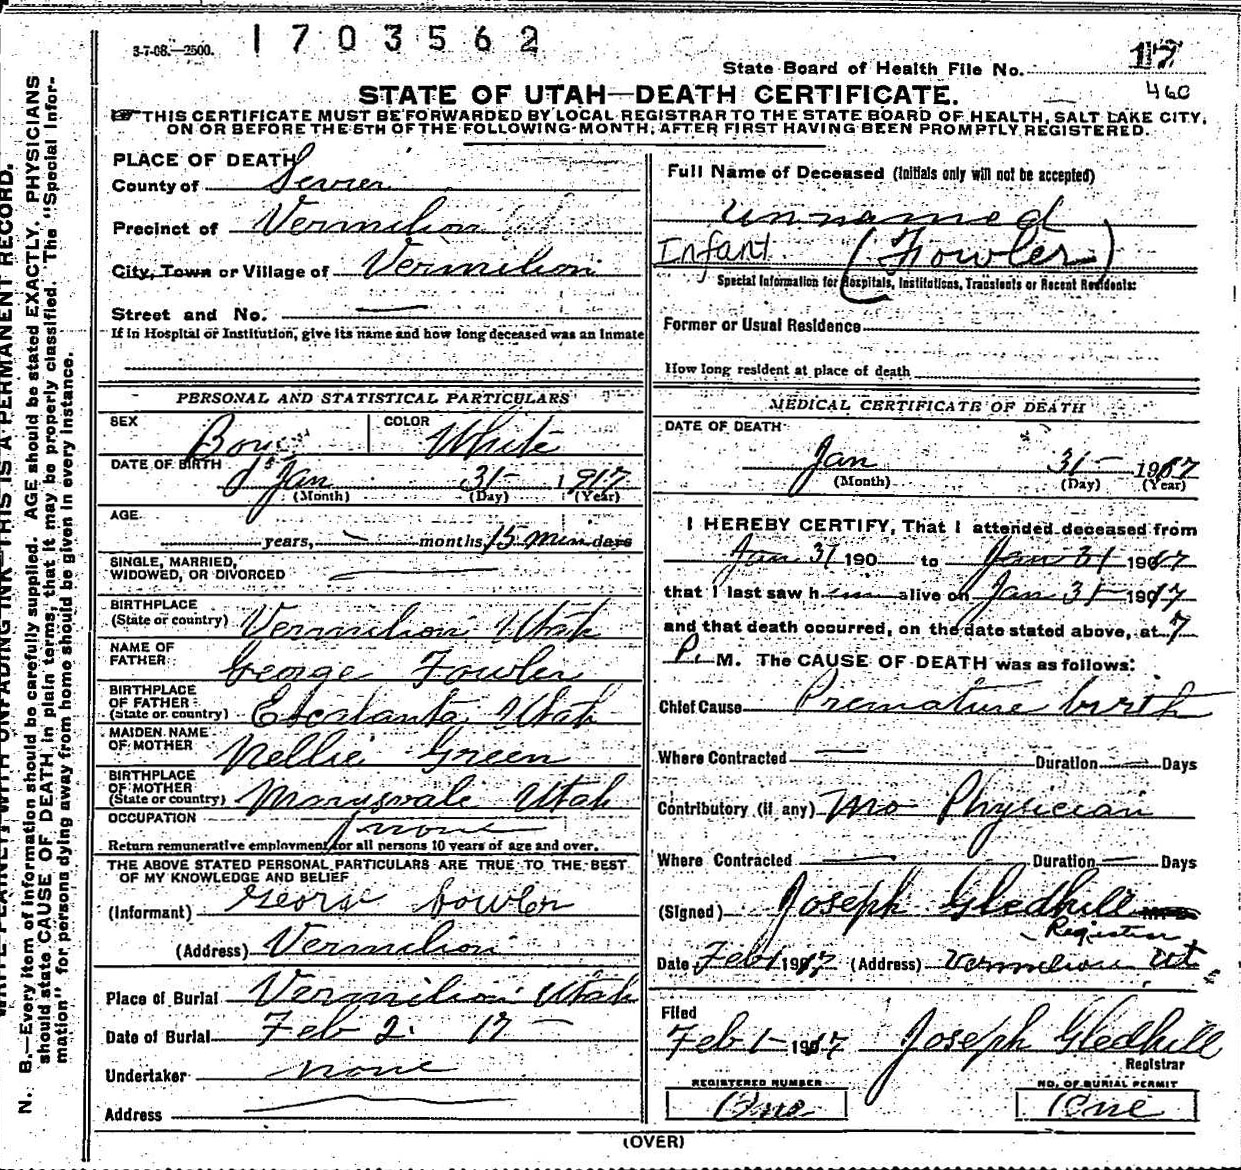 3-7-08.—2500.
1703562
State Board of Health File No. 17
460
STATE OF UTAH—DEATH CERTIFICATE.
THIS CERTIFICATE MUST BE FORWARDED BY LOCAL REGISTRAR TO THE STATE BOARD OF HEALTH, SALT LAKE CITY,
ON OR BEFORE THE 5TH OF THE FOLLOWING MONTH, AFTER FIRST HAVING BEEN PROMPTLY REGISTERED.
PLACE OF DEATH
County of Sevier
Precinct of Vermilion
City, Town or Village of Vermilion
Street and No. —
If in Hospital or Institution, give its name and how long deceased was an Inmate
PERSONAL AND STATISTICAL PARTICULARS
SEX Boy COLOR White
DATE OF BIRTH Jan 31— 1917
(Month) (Day) (Year)
AGE
years, — months 15 min days
SINGLE, MARRIED,
WIDOWED, OR DIVORCED —
BIRTHPLACE
(State or country) Vermilion Utah
NAME OF
FATHER George Fowler
BIRTHPLACE
OF FATHER
(State or country) Escalanta, Utah
MAIDEN NAME
OF MOTHER Nellie Green
BIRTHPLACE
OF MOTHER
(State or country) Marysvale Utah
OCCUPATION none
Return remunerative employment for all persons 10 years of age and over.
THE ABOVE STATED PERSONAL PARTICULARS ARE TRUE TO THE BEST
OF MY KNOWLEDGE AND BELIEF
(Informant) George Fowler
(Address) Vermilion
Place of Burial Vermilion Utah
Date of Burial Feb 2. 17—
Undertaker none
Address —
Full Name of Deceased (Initials only will not be accepted)
unnamed
Infant (Fowler)
Special Information for Hospitals, Institutions, Transients or Recent Residents:
Former or Usual Residence
How long resident at place of death
MEDICAL CERTIFICATE OF DEATH
DATE OF DEATH
Jan 31— 1917
(Month) (Day) (Year)
I HEREBY CERTIFY, That I attended deceased from
Jan 31 190 to Jan 31 1917
that I last saw him alive on Jan 31— 1917
and that death occurred, on the date stated above, at 7
P. M. The CAUSE OF DEATH was as follows:
Chief Cause Premature birth
Where Contracted — Duration — Days
Contributory (if any) No Physician
Where Contracted — Duration — Days
(Signed) Joseph Gledhill M.D.
Registrar
Date Feb 1 1917 (Address) Vermilion Ut
Filed
Feb 1— 1917 Joseph Gledhill
Registrar
REGISTERED NUMBER
One
NO. OF BURIAL PERMIT
One
(OVER)
WRITE PLAINLY WITH UNFADING INK—THIS IS A PERMANENT RECORD.
N. B.—Every item of information should be carefully supplied. AGE should be stated EXACTLY. PHYSICIANS
should state CAUSE OF DEATH in plain terms, that it may be properly classified. The "Special Infor-
mation" for persons dying away from home should be given in every instance.